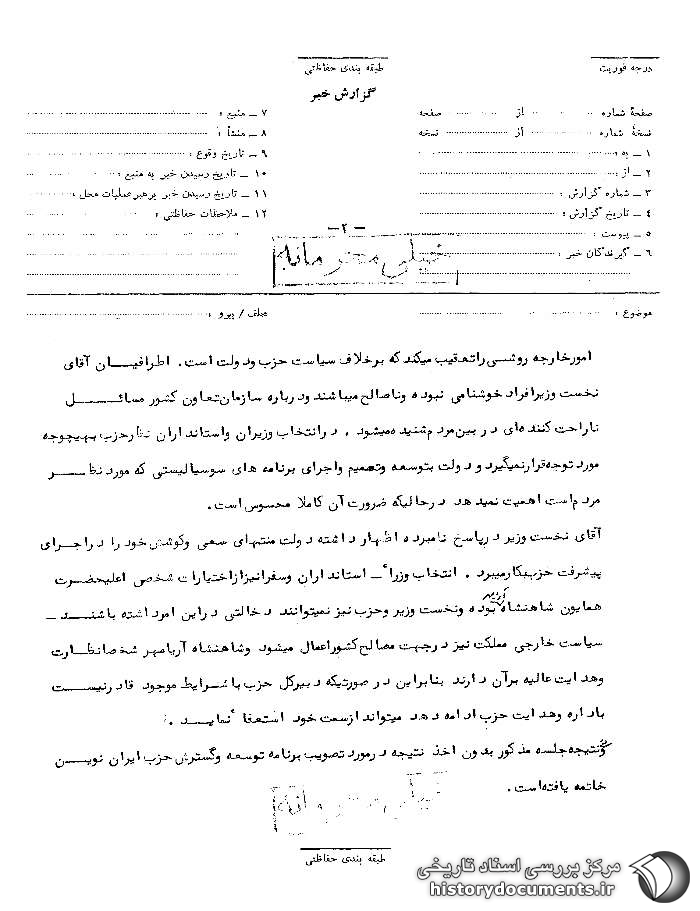 درجه فوریت
طبقه بندی حفاظتی
گزارش خبر
صفحهٔ شماره از صفحه
نسخهٔ شماره از نسخه
۱ ـ به
۲ ـ از
۳ ـ شماره گزارش :
۴ ـ تاریخ گزارش :
۵ ـ پیوست :
۶ ـ گیرندگان خبر :
۷ ـ منبع :
۸ ـ منشأ :
۹ ـ تاریخ وقوع :
۱۰ ـ تاریخ رسیدن خبر به منبع :
۱۱ ـ تاریخ رسیدن خبر برهبر عملیات محل :
۱۲ ـ ملاحظات حفاظتی :
-۲-
خیلی محرمانه
موضوع :
عطف / پیرو :
امورخارجه روشی راتعقیب میکند که برخلاف سیاست حزب ودولت است . اطرافیــان آقای
نخست وزیرافراد خوشنامی نبوده وناصالح میباشند ودرباره سازمان تعاون کشور مسائـــل
ناراحت کننده ای در بین مردم شنیده میشود . درانتخاب وزیران واستانداران نظرحزب بهیچوجه
مورد توجه قرارنمیگیرد و دولت بتوسعه وتعمیم واجرای برنامه های سوسیالیستی که مورد نظـــر
مردم است اهمیت نمیدهد درحالیکه ضرورت آن کاملا محسوس است .
آقای نخست وزیر درپاسخ نامبرده اظهار داشته دولت منتهای سعی وکوشش خود را در اجرای
پیشرفت حزب بکارمیبرد . انتخاب وزراء ـ استانداران وسفرانیزازاختیارات شخصی اعلیحضرت
همایون شاهنشاه آریامهر بوده ونخست وزیر وحزب نیز نمیتوانند دخالتی دراین امر داشته باشنـــد ـ
سیاست خارجی مملکت نیز درجهت مصالح کشوراعمال میشود وشاهنشاه آریامهر شخصا نظارت
وهدایت عالیه برآن دارند بنابراین در صورتیکه دبیرکل حزب با شرایط موجود قادرنیســـت
باداره وهدایت حزب ادامه دهد میتواند ازسمت خود استعفا نمایـــد .
ودرنتیجه جلسه مذکور بدون اخذ نتیجه درمورد تصویب برنامه توسعه وگسترش حزب ایران نویـــن
خاتمه یافته است .
خیلی محرمانه
طبقه بندی حفاظتی
مرکز بررسی اسناد تاریخی
historydocuments.ir